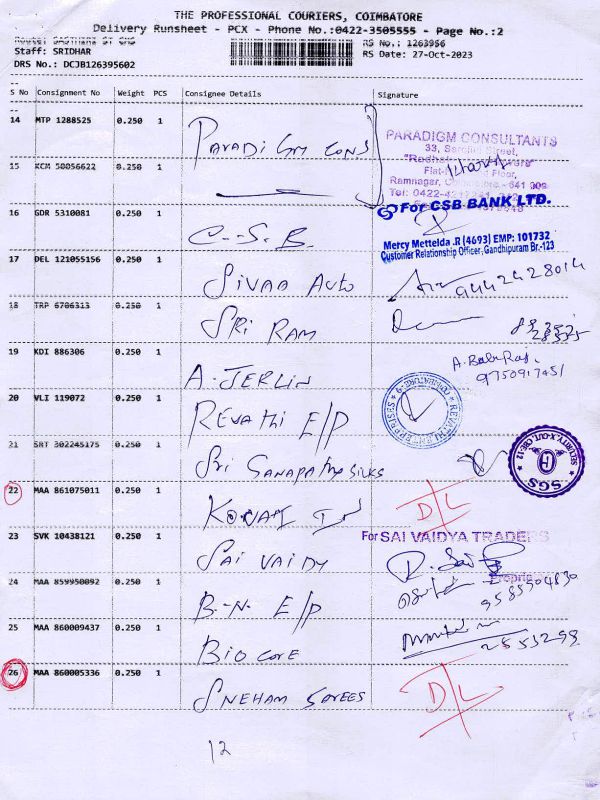 THE PROFESSIONAL COURIERS, COIMBATORE
Delivery Runsheet - PCX - Phone No.:0422-3505555 - Page No.:2
Staff: SRIDHAR
RS No.: 1263956
DRS No.: DCJB126395602
RS Date: 27-Oct-2023
S No Consignment No Weight PCS Consignee Details Signature
14 MTP 1288525 0.250 1 PARADIGM CONS
PARADIGM CONSULTANTS
15 KCM 50056622 0.250 1
For CSB BANK LTD.
16 GDR 5310081 0.250 1 C.S.B.
Mercy Mettelda .R (4693) EMP: 101732
Customer Relationship Officer, Gandhipuram Br.-123
17 DEL 121055156 0.250 1 SIVAA AUTO
9442428014
18 TRP 6706313 0.250 1 SRI RAM
19 KDI 886306 0.250 1 A. JERLIN
A. Babu Raj.
9750917451
20 VLI 119072 0.250 1 REVATHI E/P
REVATHI ENTERPRISES
21 SRT 302245175 0.250 1 Sri GANAPATHY SILKS
SGS
22 MAA 861075011 0.250 1
D/L
23 SVK 10438121 0.250 1 SAI VAIDY
For SAI VAIDYA TRADERS
24 MAA 859950092 0.250 1 B.N. E/P
9585504830
25 MAA 860009437 0.250 1 BIO CORE
2553298
26 MAA 860005336 0.250 1 SNEHAM SAREES
D/L
12